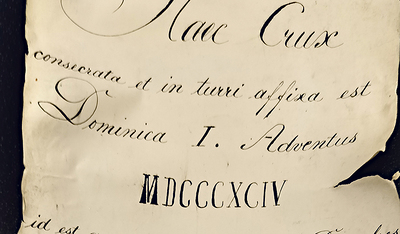 Haec Crux
consecrata et in turri affixa est
Dominica I. Adventus
MDCCCXCIV
id est